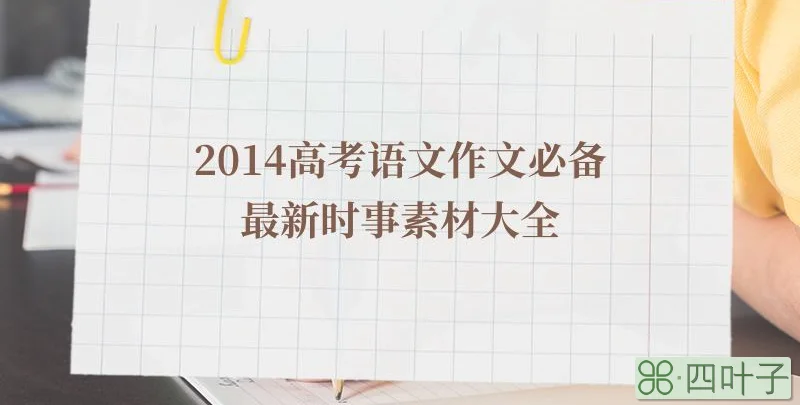 2014高考语文作文必备
最新时事素材大全
四叶子